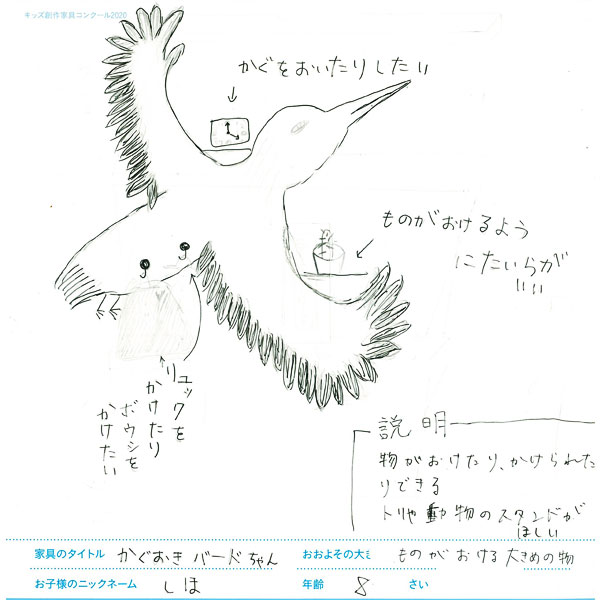 キッズ創作家具コンクール2020
かぐをおいたりしたい
ものがおけるよう
にたいらが
いい
リュックを
かけたり
ボウシを
かけたい
説明
物がおけたり、かけられた
りできる
トリや動物のスタンドが
ほしい
家具のタイトル かぐおき バードちゃん
おおよその大 ものがおける大きめの物
お子様のニックネーム しほ
年齢 8 さい